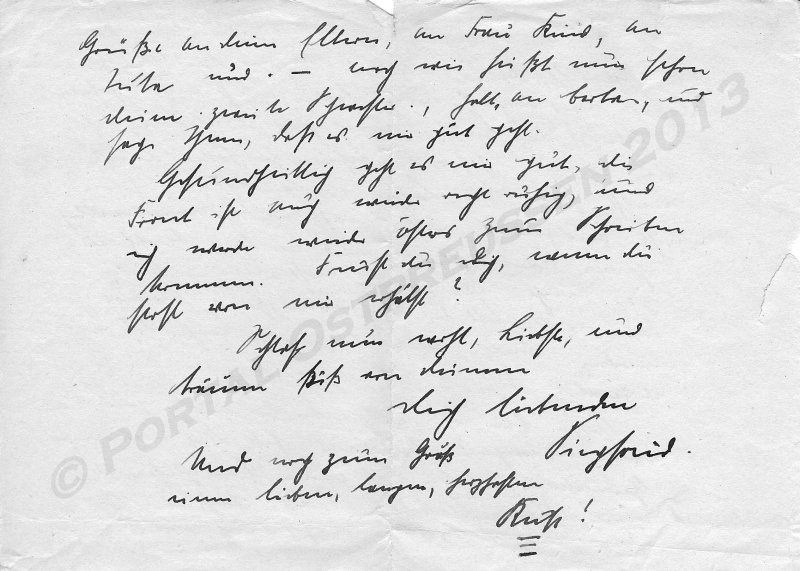 Grüße an deine Eltern, an Frau Kind, an
Tuta und. — noch wie heißt nun schon
deine zweite Schwester, halt, an und
sage Ihnen, daß es mir gut geht.
Gesundheitlich geht es mir gut, die
Front ist auch wieder recht ruhig, und
ich werde wieder öfters zum Schreiben
kommen. Freust du dich, wenn du
Post von mir erhälst?
Schlaf nun wohl, Liebste, und
träume süß von deinem
dich liebenden
Siegfried.
Und noch zum Gruß
einen lieben, langen, herzhaften
Kuß!
© Portal Ostereußen 2013